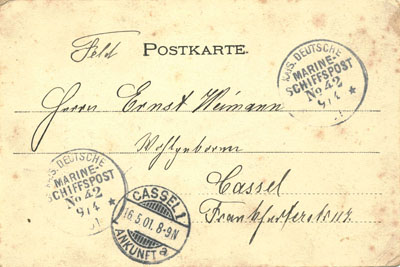 Feld POSTKARTE.
KAIS. DEUTSCHE
MARINE-
SCHIFFSPOST
No 42
9/4
Herrn Ernst Weimann
Wohlgeboren
Cassel
KAIS. DEUTSCHE
MARINE-
SCHIFFSPOST
No 42
9/4
CASSEL 1
16.5.01. 8-9N
ANKUNFT a